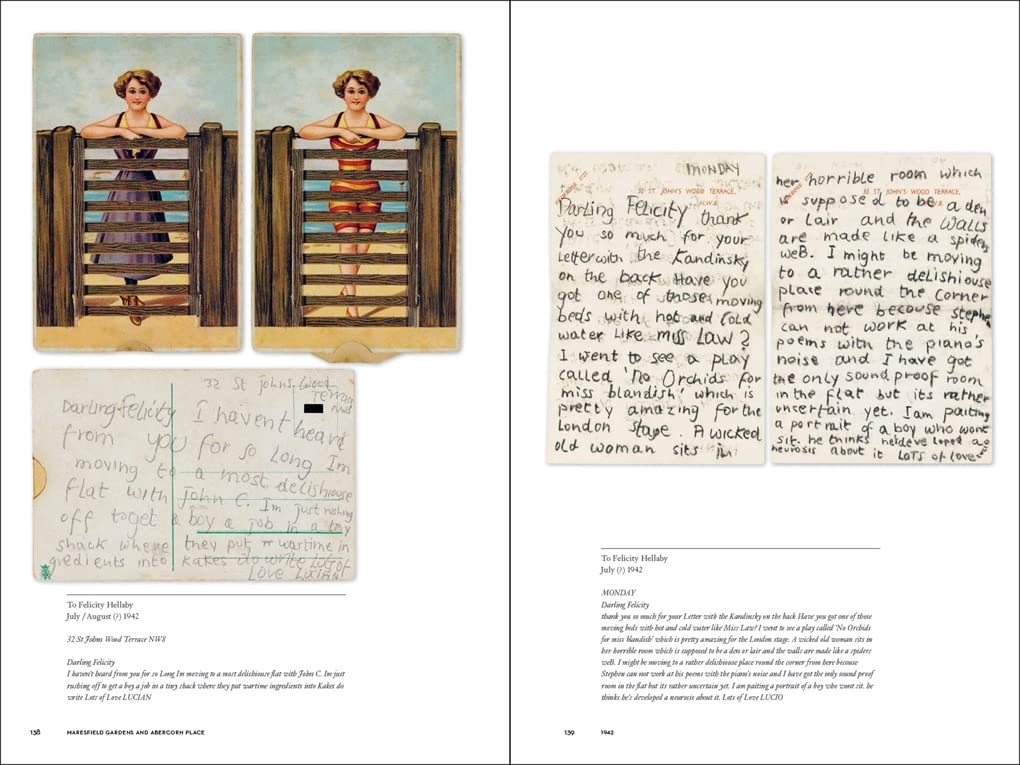 32 St Johns Wood
Terrace
NW8
Darling Felicity I havent heard
from you for so long Im
moving to a most delishiouse
flat with John C. Im just rushing
off to get a boy a job in a tiny
shack where they put wartime in
gredients into Kakes do write Lots of
Love Lucian
To Felicity Hellaby
July / August (?) 1942
32 St Johns Wood Terrace NW8
Darling Felicity
I haven't heard from you for so Long Im moving to a most delishiouse flat with John C. Im just
rushing off to get a boy a job in a tiny shack where they put wartime ingredients into Kakes do
write Lots of Love LUCIAN
138 MARESFIELD GARDENS AND ABERCORN PLACE
MONDAY
32 ST. JOHN'S WOOD TERRACE,
N.W.8
Darling Felicity thank
you so much for your
Letter with the Kandinsky
on the back Have you
got one of those moving
beds with hot and Cold
water like miss Law?
I went to see a play
called 'No Orchids for
miss blandish' which is
pretty amazing for the
London stage. A wicked
old woman sits in
her horrible room which
32 ST. JOHN'S WOOD TERRACE,
N.W.8
is supposed to be a den
or Lair and the Walls
are made like a spiders
weB. I might be moving
to a rather delishiouse
place round the corner
from here becouse stephen
can not work at his
poems with the piano's
noise and I have got
the only sound proof room
in the flat but its rather
uncertain yet. I am paiting
a portrait of a boy who wont
sit. he thinks he's developed a
neurosis about it LOTS of Love
To Felicity Hellaby
July (?) 1942
MONDAY
Darling Felicity
thank you so much for your Letter with the Kandinsky on the back Have you got one of those
moving beds with hot and cold water like Miss Law? I went to see a play called 'No Orchids
for miss blandish' which is pretty amazing for the London stage. A wicked old woman sits in
her horrible room which is supposed to be a den or lair and the walls are made like a spiders
weB. I might be moving to a rather delishiouse place round the corner from here becouse
Stephen can not work at his poems with the piano's noise and I have got the only sound proof
room in the flat but its rather uncertain yet. I am paiting a portrait of a boy who wont sit. he
thinks he's developed a neurosis about it. Lots of Love LUCIO
139 1942